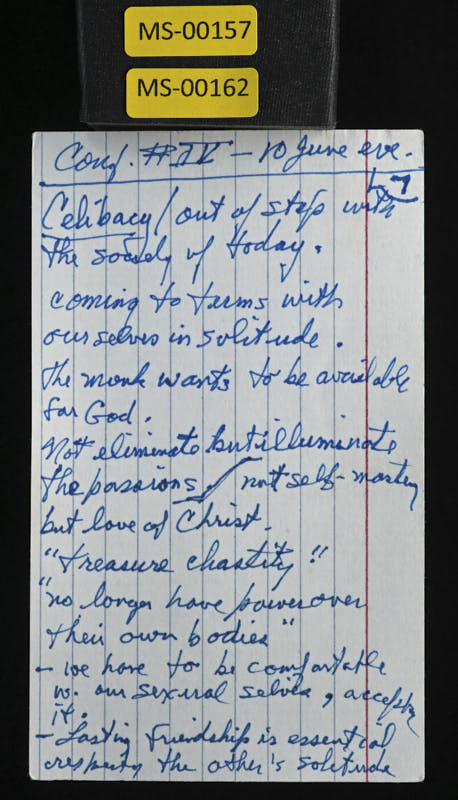 MS-00157
MS-00162
Conf. #IV - 10 June eve.
7
Celibacy / out of step with
the society of today.
coming to terms with
ourselves in solitude.
The monk wants to be available
for God.
Not eliminate but illuminate
the passions / not self-mastery
but love of Christ.
"treasure chastity"!
"no longer have power over
their own bodies"
- we have to be comfortable
w. our sexual selves, accepting
it.
- Lasting friendship is essential,
respecting the other's solitude